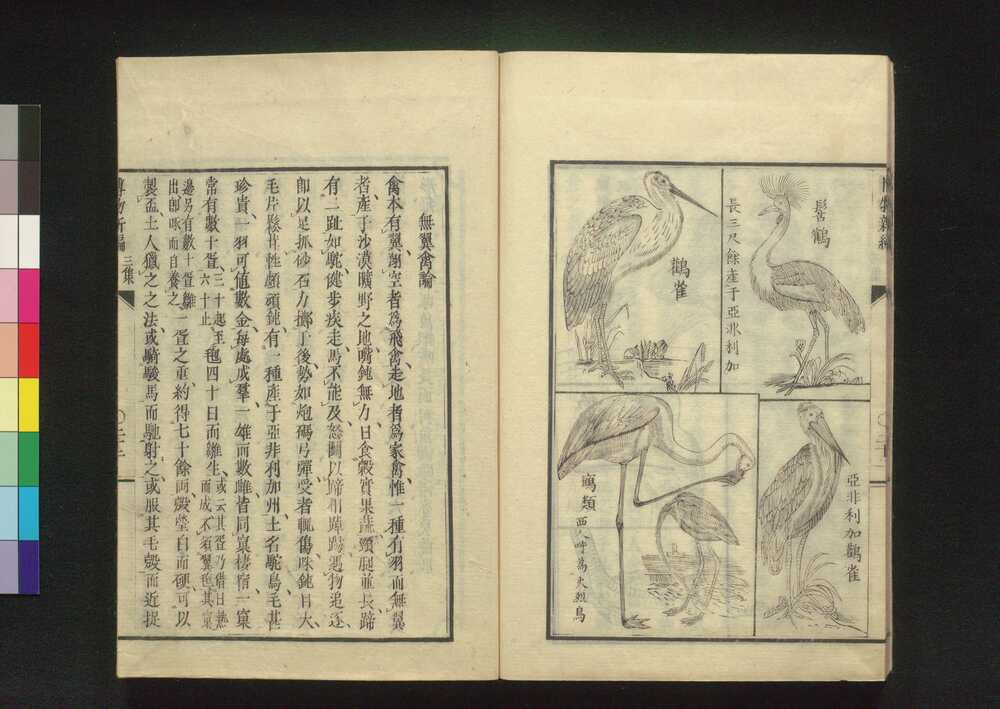 博物新編
髻鶴
長三尺餘產于亞非利加
鸛雀
亞非利加鸛雀
鷸類
西人呼為火烈鳥
無翼禽論
禽本有翼翱空者為飛禽走地者為家禽惟一種有羽而無翼
者產于沙漠曠野之地嘴鈍無力日食穀實果蔬頸腿並長蹄
有二趾如駝健步疾走馬不能及怒鬭以蹄相踔踢遇物追逐
即以足抓砂石力擲于後勢如炮碼弓彈受者輒傷味鈍目大
毛片鬆茸性頗頑鈍有一種產于亞非利加州土名駝鳥毛甚
珍貴一羽可値數金每處成羣一雄而數雌皆同窠棲宿一窠
常有數十蛋三十起至六十止毎四十日而雛生或云其蛋乃借日熱而成不須翼也其窠
邊另有數十蛋雛出即啄而自養之一蛋之重約得七十餘両殼瑩白而硬可以
製盃土人獵之之法或騎駿馬而馳射之或服其毛殼而近捉
博物新編
三集